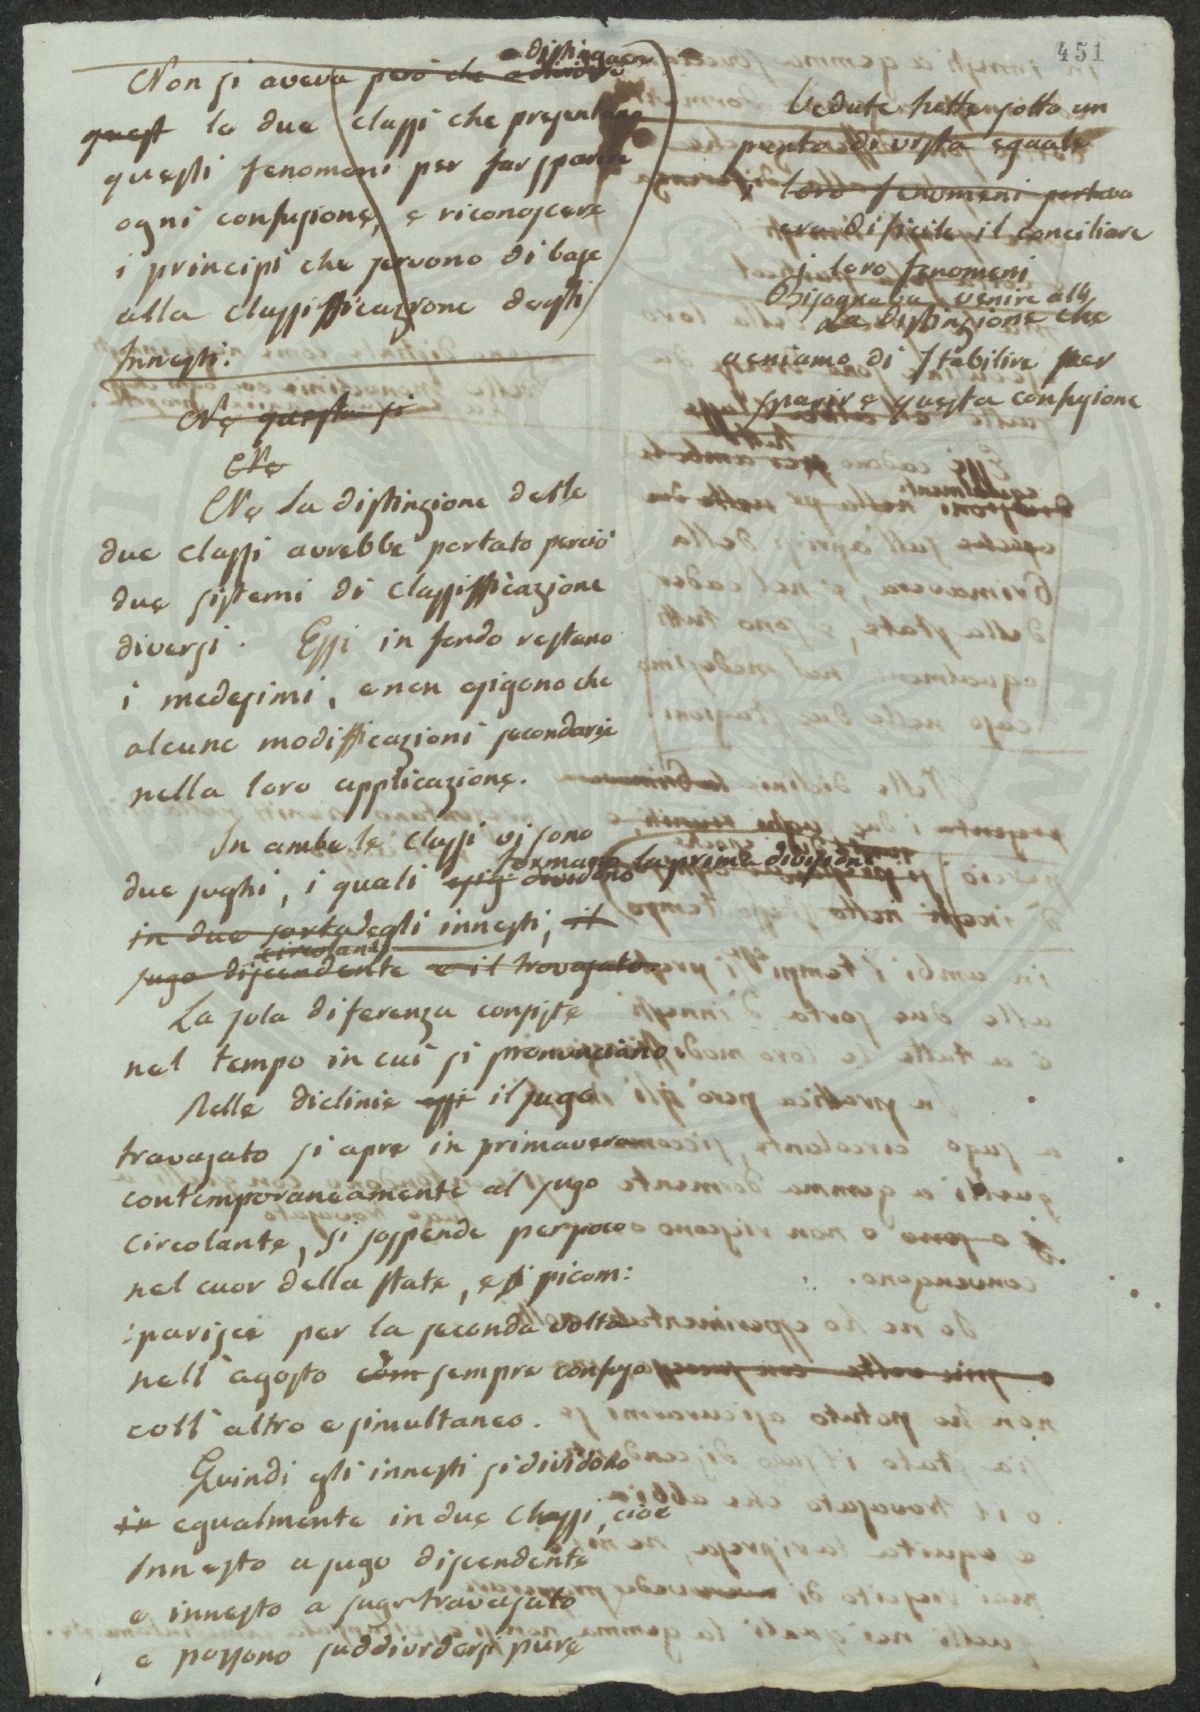 451
distinguere
Non si aveva però che a dividere
quest le due classi che presentano
questi fenomeni per far sparire
ogni confusione, e riconoscere
i principi che servono di base
alla classifficazione degli
Innesti.
Ne questa si
Ne
Ne la distinzione delle
due classi avrebbe portato perciò
due sistemi di classifficazione
diversi. Essi in fondo restano
i medesimi, e non esigono che
alcune modifficazioni secondarie
nella loro applicazione.
In ambe le classi vi sono
formano la prima divisione
due sughi, i quali dividono
in due sorta degli innesti, il
circolante
sugo discendente e il travasato.
La sola diferenza consiste
nel tempo in cui si pronunciano
Nelle diclinie essi il sugo
travasato si apre in primavera
contemporaneamente al sugo
circolante, si sospende per poco
nel cuor della state, e si ricom:
:parisce per la seconda volta
nell'agosto com sempre confuso
coll'altro e simultaneo.
Quindi gli innesti si dividono
in egualmente in due Classi, cioè
Innesto a sugo discendente
e innesto a sugo travasato
e possono suddividersi pure
Vedute tutte sotto un
punto di vista eguale
i loro fenomeni portava
era dificile il conciliare
i loro fenomeni
Bisognava venire alla
La distinzione che
veniamo di stabilire per
sparire questa confusione